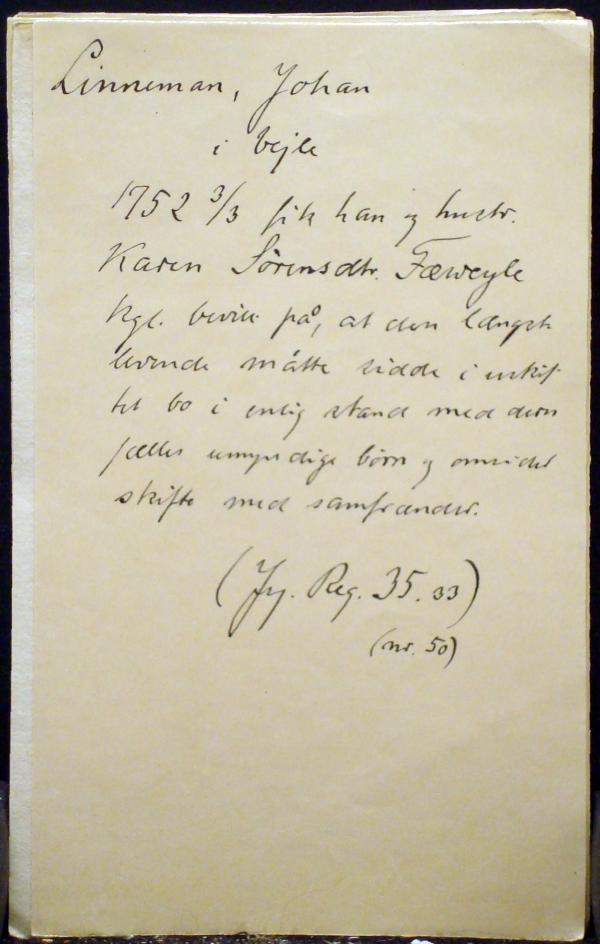 Linneman, Johan
i Vejle
1752 3/3 fik han og hustr.
Karen Sørensdtr. Fæweyle
kgl. bevill. på, at den længst
levende måtte sidde i uskif-
tet bo i enlig stand med deres
fælles umyndige børn og omsider
skifte med samfrænder.
(Jy. Reg. 35.33)
(nr. 50)